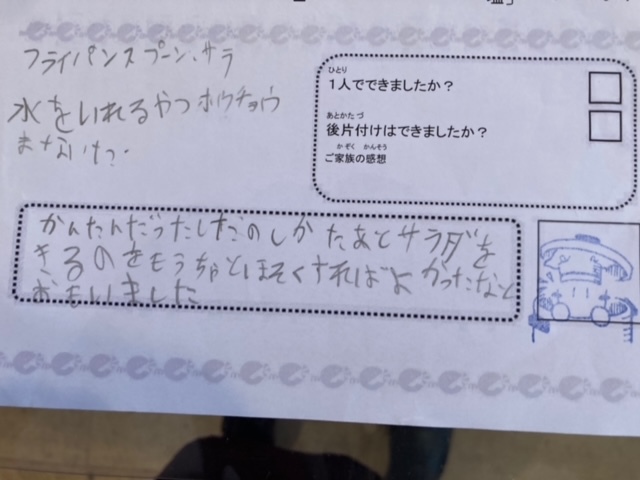 塩」
フライパンスプーン、サラ
水をいれるやつホウチョウ
まないた
ひとり
1人でできましたか?
あとかたづ
後片付けはできましたか?
かぞく かんそう
ご家族の感想
かんたんだったしたのしかたあとサラダを
きるのをもうちょとほそくすればよかったなと
おもいました